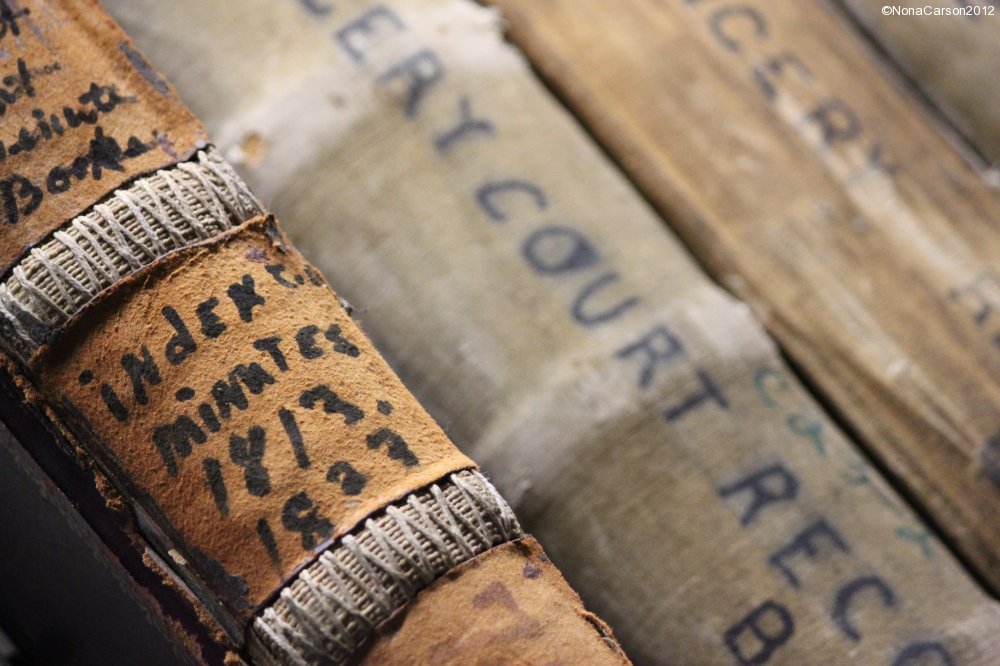 ©NonaCarson2012
Minute
Books
index to
minutes
1813.
1827
ERY COURT RECO
B
NCERY